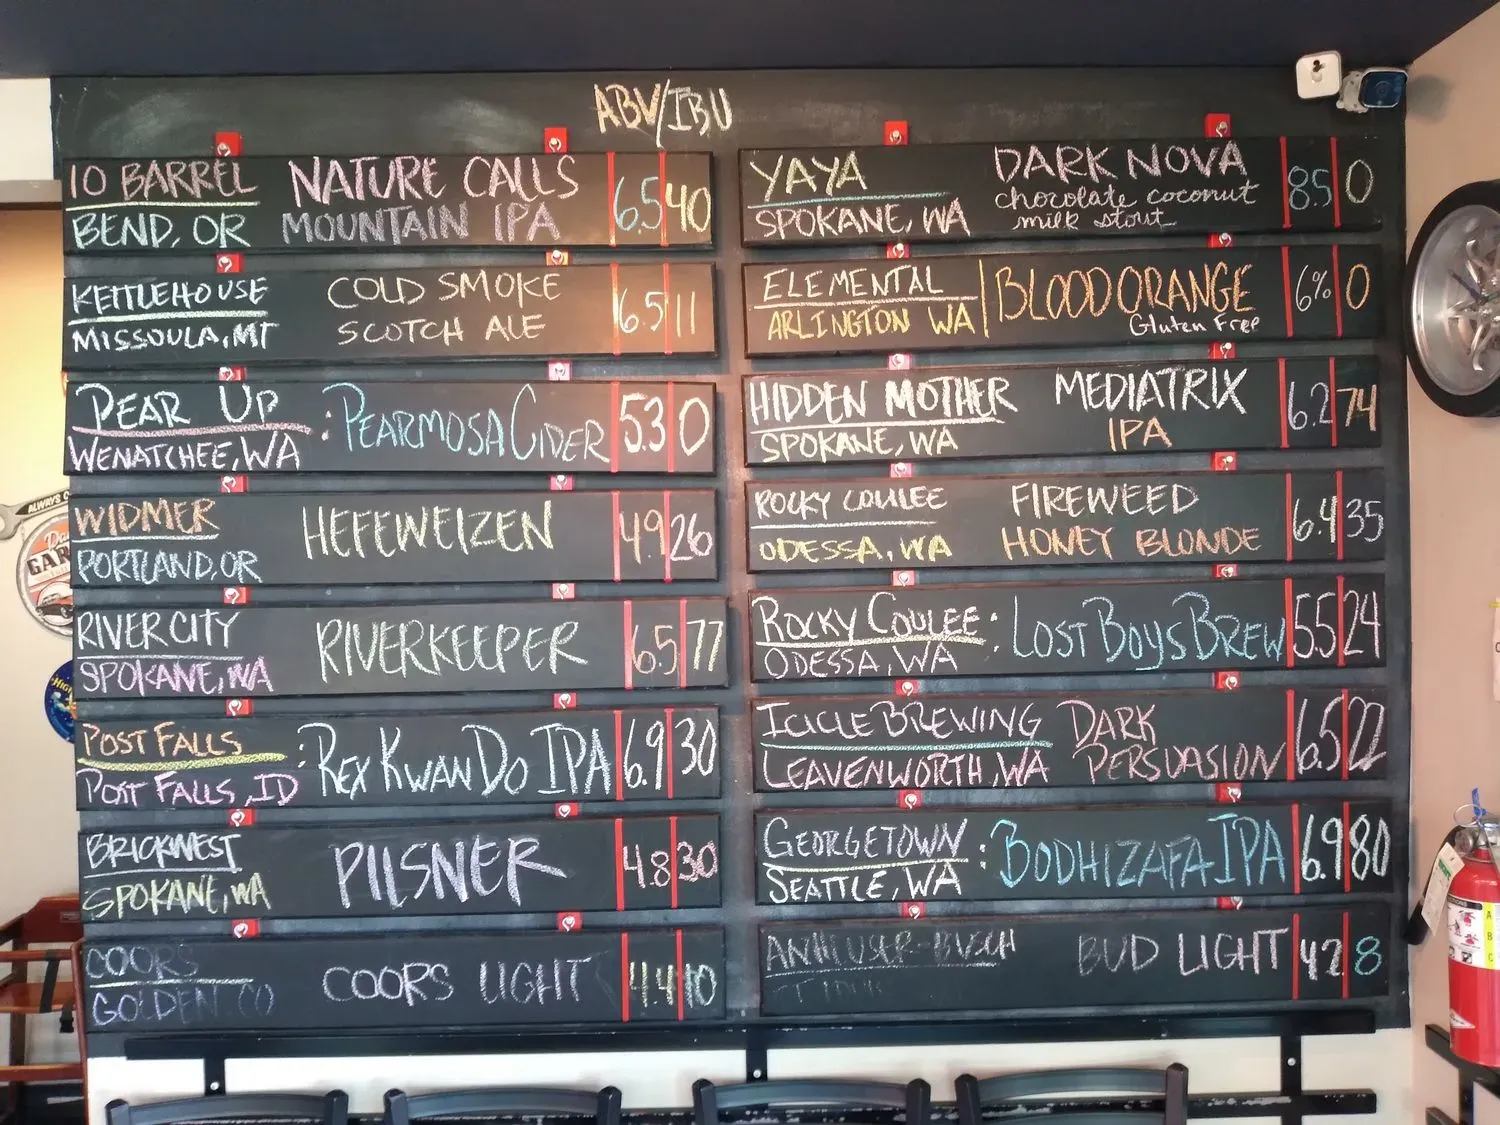 ABV/IBU
10 BARREL
BEND, OR
NATURE CALLS
MOUNTAIN IPA
6.5 40
KETTLEHOUSE
MISSOULA, MT
COLD SMOKE
SCOTCH ALE
6.5 11
PEAR UP
WENATCHEE, WA
: PEARMOSA CIDER
5.3 0
WIDMER
PORTLAND, OR
HEFEWEIZEN
4.9 26
RIVER CITY
SPOKANE, WA
RIVERKEEPER
6.5 77
POST FALLS
POST FALLS, ID
: REX KWAN DO IPA
6.9 30
BRICKWEST
SPOKANE, WA
PILSNER
4.8 30
COORS
GOLDEN CO
COORS LIGHT
4.4 10
YAYA
SPOKANE, WA
DARK NOVA
chocolate coconut
milk stout
8.5 0
ELEMENTAL
ARLINGTON WA
BLOOD ORANGE
Gluten Free
6% 0
HIDDEN MOTHER
SPOKANE, WA
MEDIATRIX
IPA
6.2 74
ROCKY COULEE
ODESSA, WA
FIREWEED
HONEY BLONDE
6.4 35
ROCKY COULEE
ODESSA, WA
: LOST BOYS BREW
5.5 24
ICICLE BREWING
LEAVENWORTH, WA
DARK
PERSUASION
6.5 22
GEORGETOWN
SEATTLE, WA
: BODHIZAFA IPA
6.9 80
ANHEUSER-BUSCH
BUD LIGHT
4.2 8
ALWAYS
GAR
HIGH